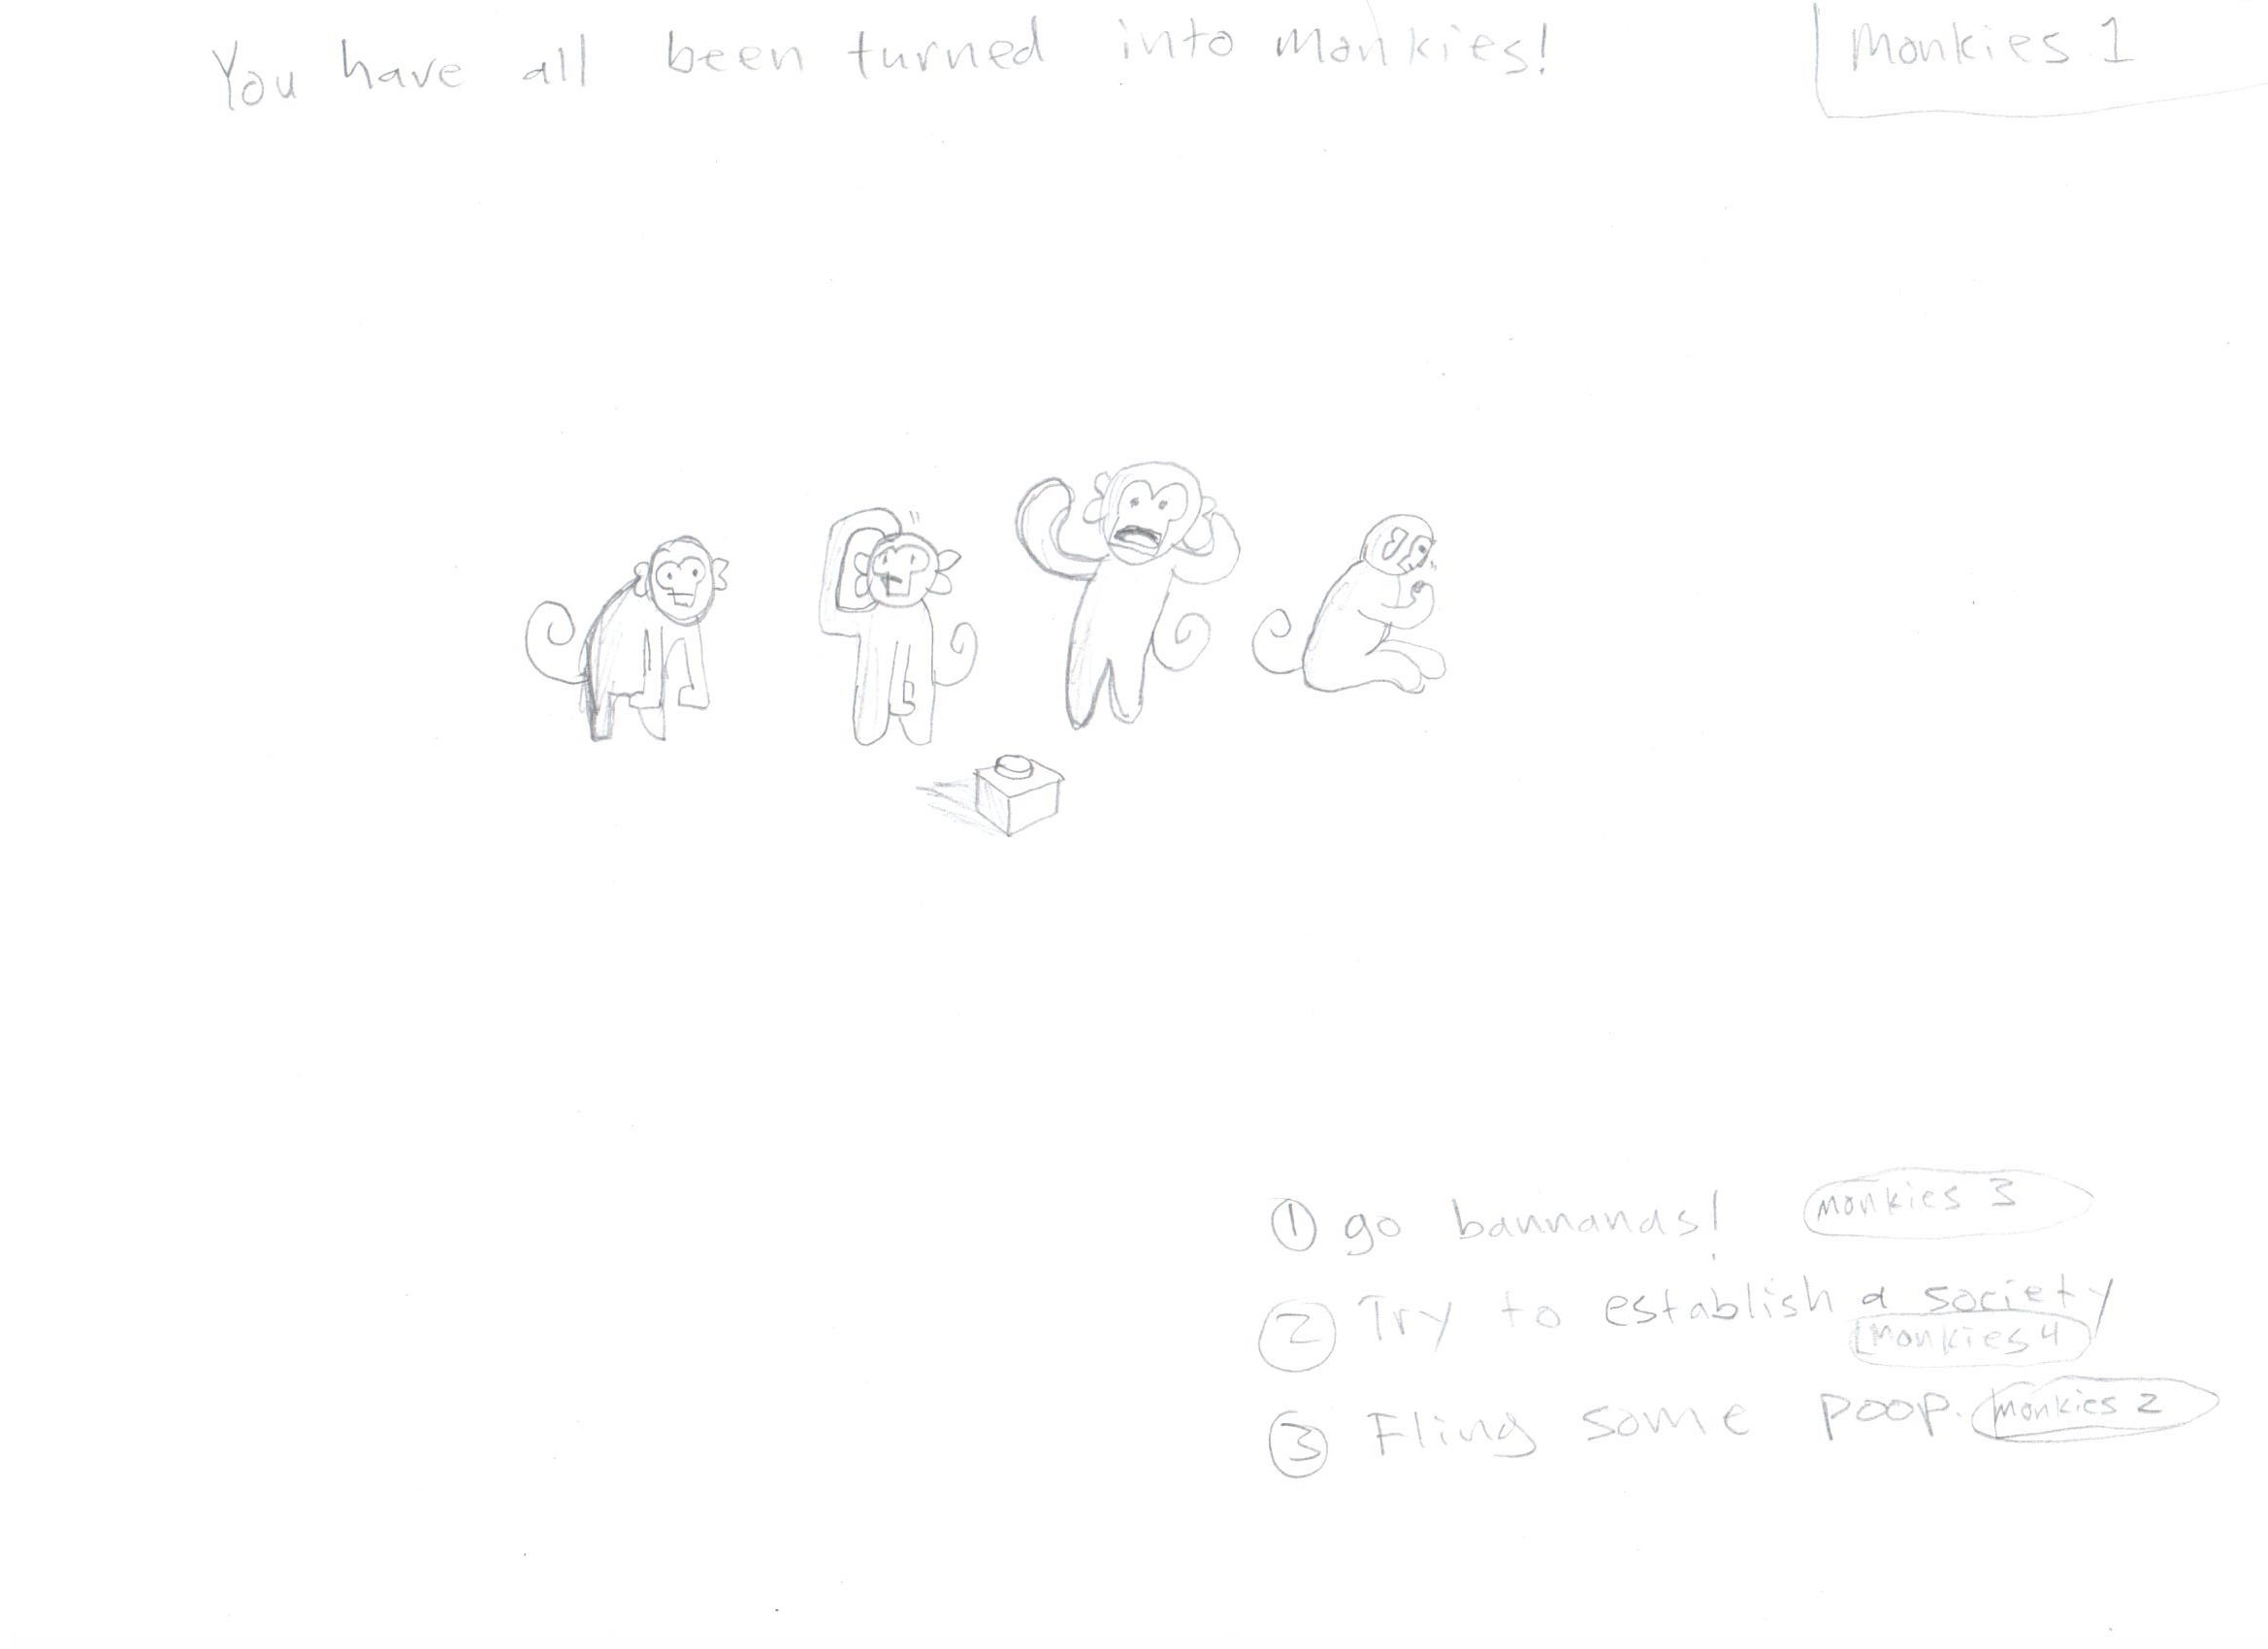 You have all been turned into Monkies!
Monkies 1
1 go bannanas! monkies 3
2 Try to establish a society
monkies 4
3 Fling some poop. monkies 2